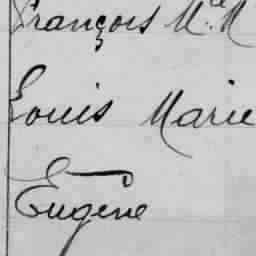 François M.ie M
Louis Marie
Eugène